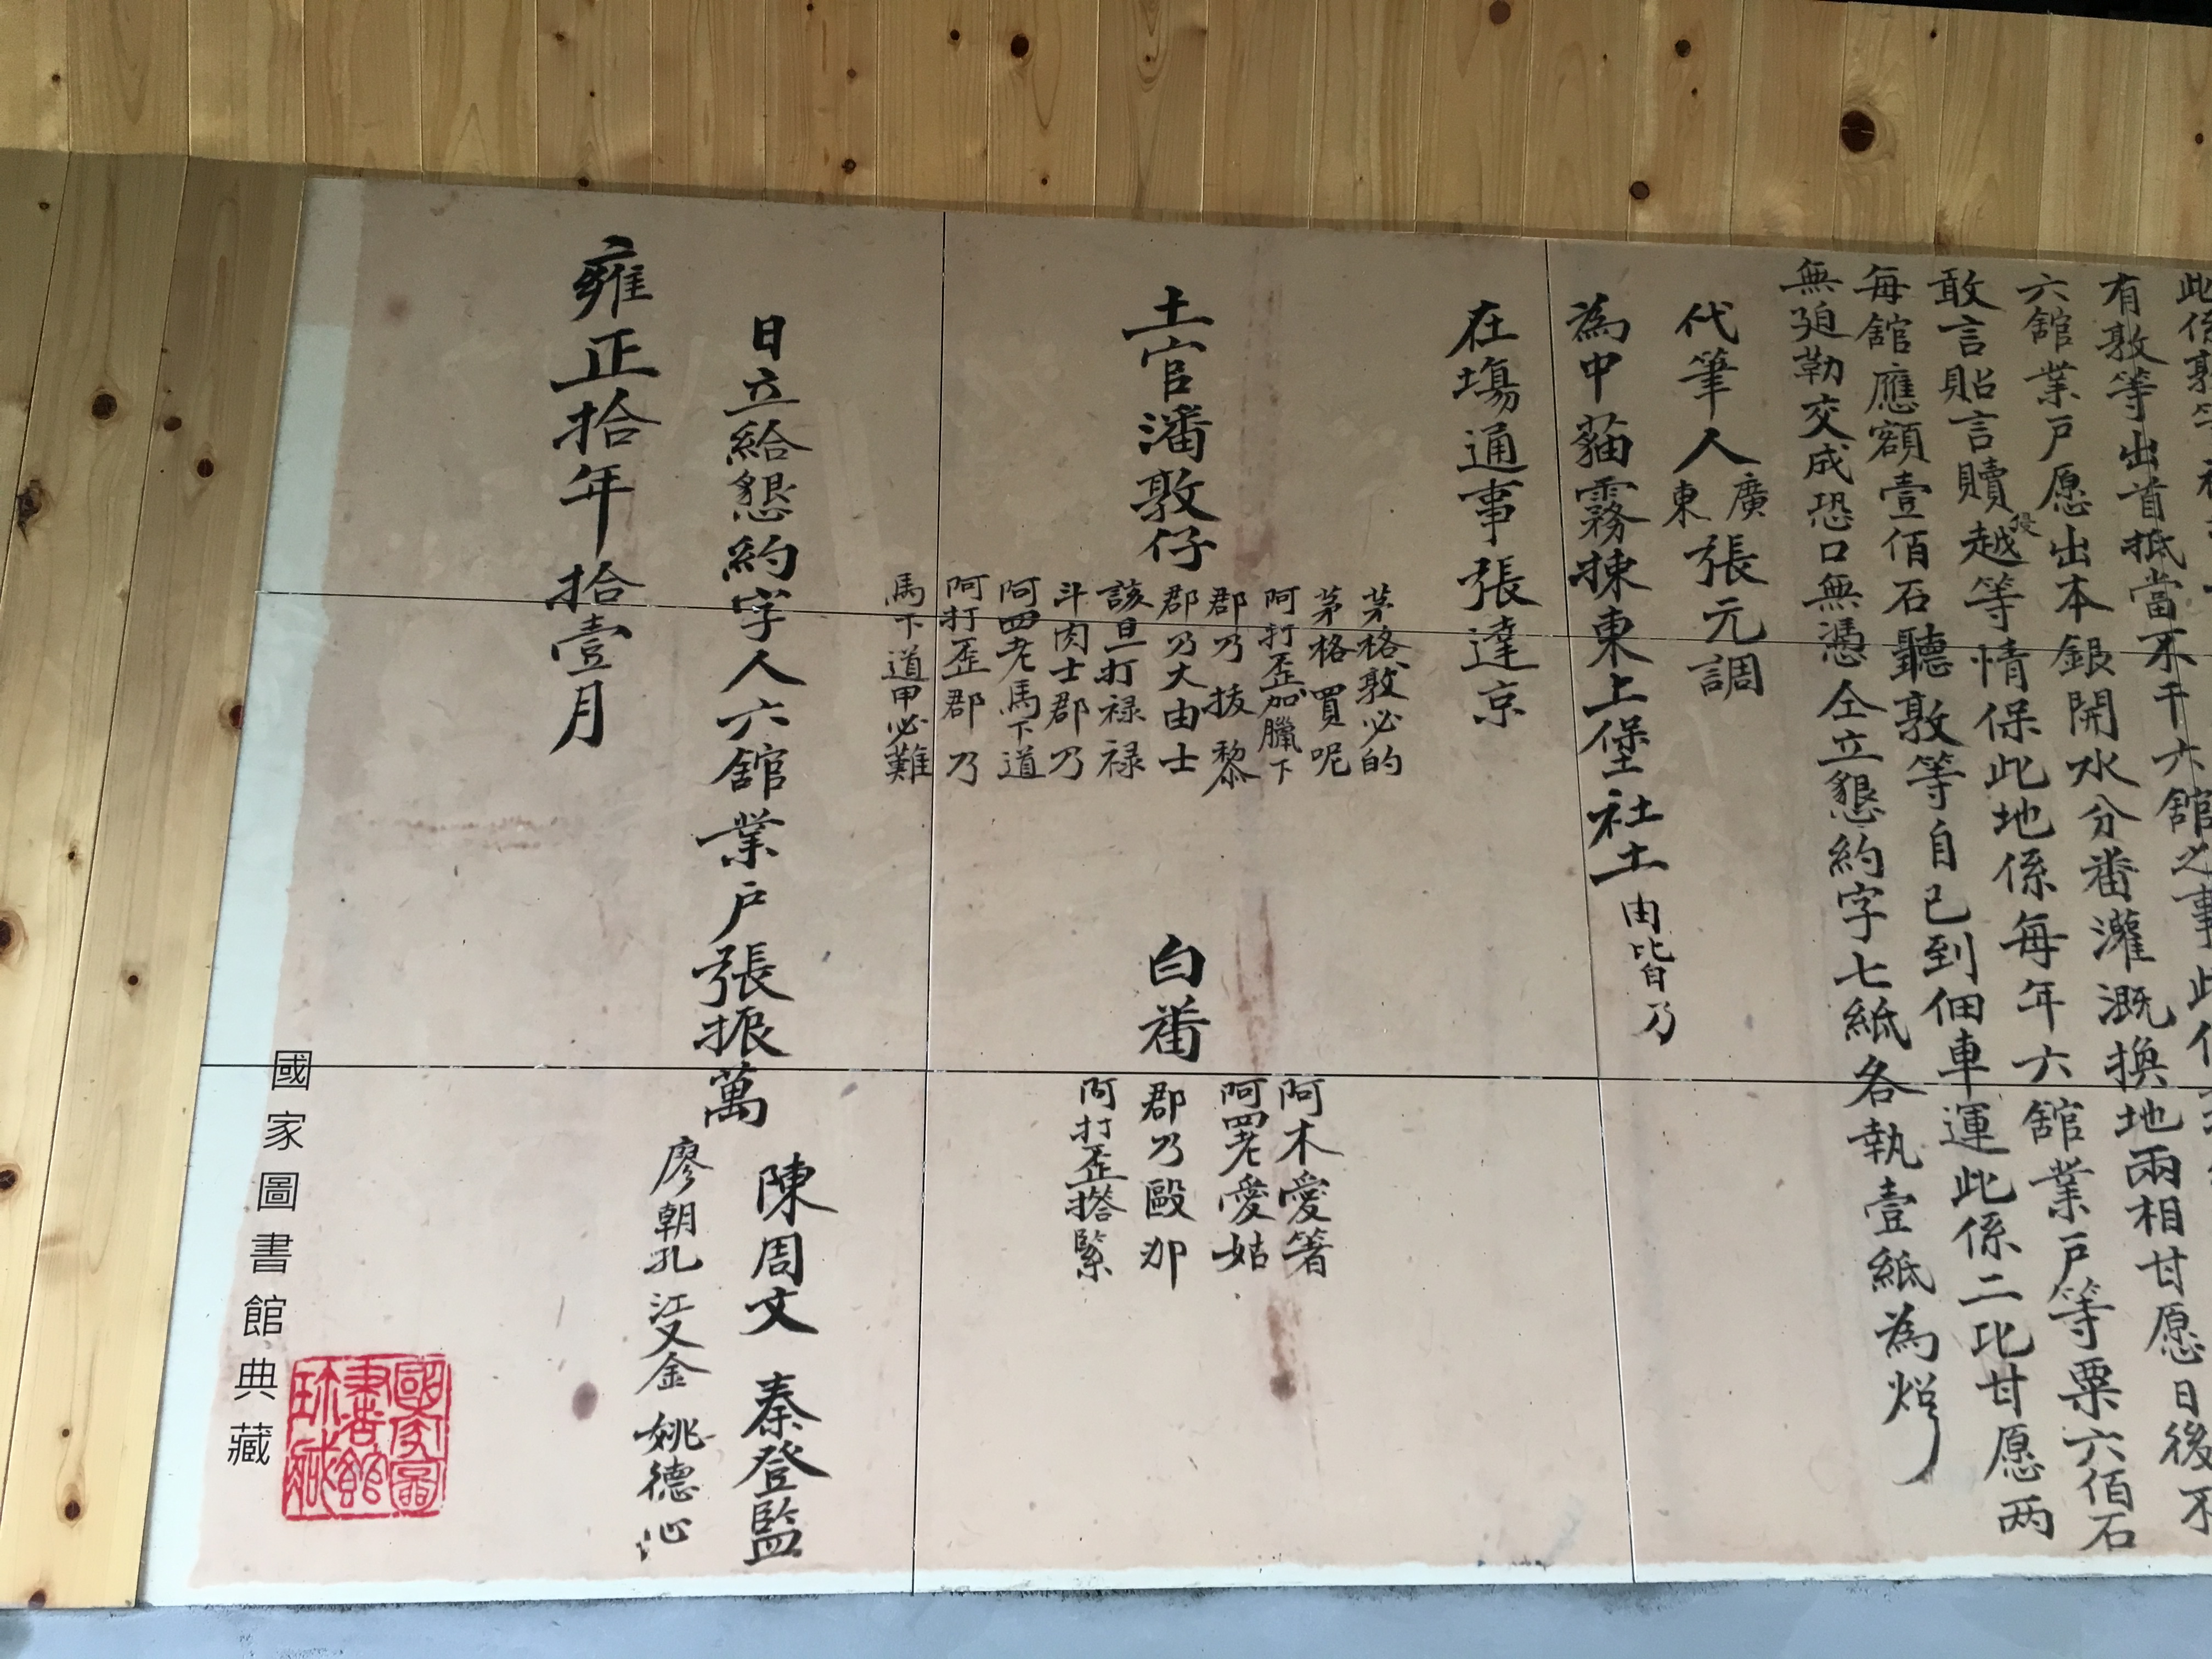 有敦等出首抵當不干六舘之事此
六舘業户愿出本銀開水分番灌溉換地兩相甘愿日後不
敢言貼言贖侵越等情保此地係每年六舘業户等粟六佰石
每舘應額壹佰石聽敦等自己到佃車運此係二比甘愿两
無廹勒交成恐口無憑仝立懇約字七紙各執壹紙為炤
代筆人廣東張元調
為中貓霧捒東上堡社土由皆乃
在塲通事張達京
土官潘敦仔
茅格敦必的
茅格買呢
阿打歪加臘下
郡乃拔黎
郡乃大由士
該旦打禄禄
斗肉士郡乃
阿四老馬下道
阿打歪郡乃
馬下道甲必難
白番
阿木愛箸
阿四老愛姑
郡乃毆𨙻
阿打歪搭緊
日立給懇約字人六舘業户張振萬
陳周文 秦登監
廖朝孔 江又金 姚德心
雍正拾年拾壹月
國家圖書館典藏
國家圖書館珎藏